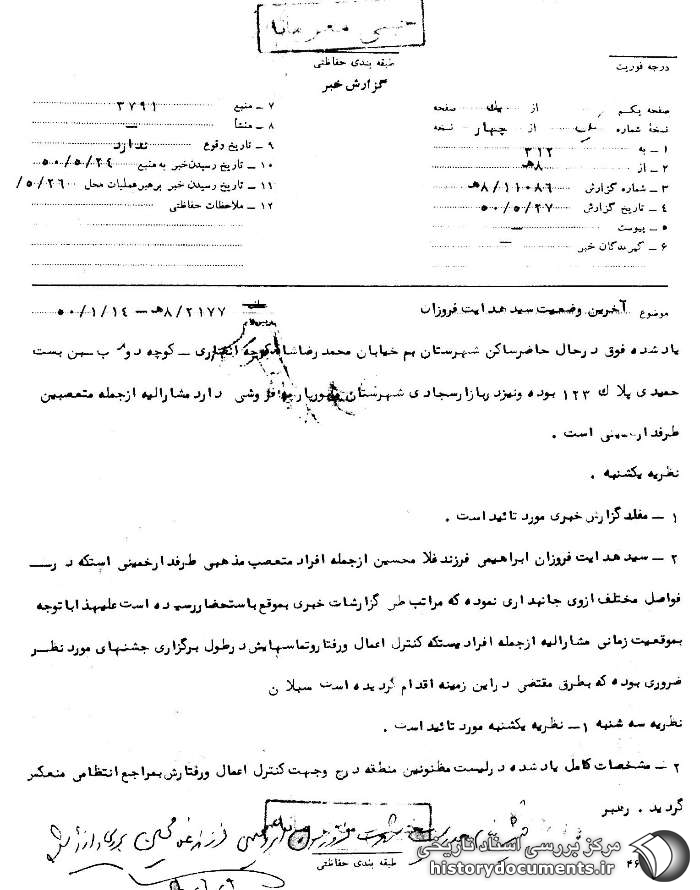 خیلی محرمانه
طبقه بندی حفاظتی
درجه فوریت
گزارش خبر
صفحه یکم از یک صفحه
نسخهٔ شماره از چهار نسخه
۱ ـ به ۳۱۲
۲ ـ از ۸هـ
۳ ـ شماره گزارش ۸/۱۱۰۸۶هـ
۴ ـ تاریخ گزارش ۵۰/۵/۲۷
۵ ـ پیوست ـ
۶ ـ گیرندگان خبر ـ
۷ ـ منبع ۳۷۹۱
۸ ـ منشأ ـ
۹ ـ تاریخ وقوع ندارد
۱۰ ـ تاریخ رسیدن خبر به منبع ۵۰/۵/۲۴
۱۱ ـ تاریخ رسیدن خبر برهبر عملیات محل ۵/۲۶/
۱۲ ـ ملاحظات حفاظتی
موضوع آخرین وضعیت سید هدایت فروزان ۸/۲۱۷۷هـ ـ ۵۰/۱/۱۴
یاد شده فوق در حال حاضر ساکن شهرستان بم خیابان محمد رضا شاه کوچه انصاری ـ کوچه دوم بن بست
حمیدی پلاک ۱۲۳ بوده و نیز در بازار سجادی شهرستان فروشی دارد مشارالیه از جمله متعصبین
طرفدار خمینی است .
نظریه یکشنبه .
۱ ـ مفاد گزارش خبری مورد تائید است .
۲ ـ سید هدایت فروزان ابراهیمی فرزند غلامحسین از جمله افراد متعصب مذهبی طرفدار خمینی استکه در
فواصل مختلف از وی جانبداری نموده که مراتب طی گزارشات خبری بموقع باستحضار رسیده است علیهذا با توجه
بموقعیت زمانی مشارالیه از جمله افرادیستکه کنترل اعمال و رفتار و تماسهایش در طول برگزاری جشنهای مورد نظر
ضروری بوده که بطرق مقتضی در این زمینه اقدام گردیده است
نظریه سه شنبه ۱ ـ نظریه یکشنبه مورد تائید است .
۲ ـ مشخصات کامل یاد شده در لیست مظنونین منطقه درج و جهت کنترل اعمال و رفتارش بمراجع انتظامی منعکس
گردید . رهبر
فرزند غلامحسین
طبقه بندی حفاظتی
مرکز بررسی اسناد تاریخی
historydocuments.ir